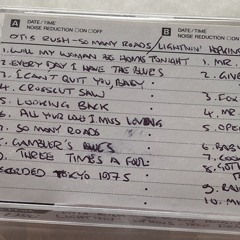 A DATE/TIME
NOISE REDUCTION □ON □OFF
B DATE/TIME
NOISE REDUCTION
OTIS RUSH-SO MANY ROADS/LIGHTNIN' HOPKINS
1. WILL MY WOMAN BE HOME TONIGHT
2. EVERY DAY I HAVE THE BLUES
3. I CAN'T QUIT YOU, BABY
4. CROSSCUT SAW
5. LOOKING BACK
6. ALL YOUR LOVE I MISS LOVING
7. SO MANY ROADS
8. GAMBLER'S BLUES
9. THREE TIMES A FOOL
RECORDED TOKYO 1975
1. MR.
2. GIV
3. FOX
4. MR
5. OPE
6. BAB
7. COO
8. GO
9. BA
10. M